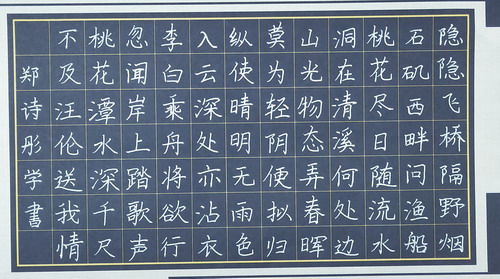 隐隐飞桥隔野烟
石矶西畔问渔船
桃花尽日随流水
洞在清溪何处边
山光物态弄春晖
莫为轻阴便拟归
纵使晴明无雨色
入云深处亦沾衣
李白乘舟将欲行
忽闻岸上踏歌声
桃花潭水深千尺
不及汪伦送我情
郑诗彤学書